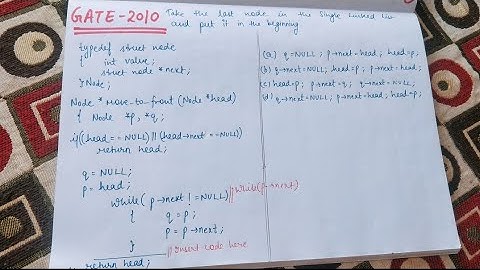 GATE-2010
Take the last node in the Single Linked List
and put it in the beginning
typedef struct node
{ int value;
struct node *next;
}Node;
Node * Move-to-front (Node *head)
{ Node *p, *q;
if((head == NULL)||(head→next == NULL))
return head;
q = NULL;
p = head;
while( p→next != NULL) || while(p→next)
{ q = p;
p = p→next;
}
// Insert code here
return head;
(a) q=NULL; p→next=head; head=p;
(b) q→next=NULL; head=p; p→next=head;
(c) head=p; p→next=q; q→next=NULL;
(d) q→next=NULL; p→next=head; head=p;